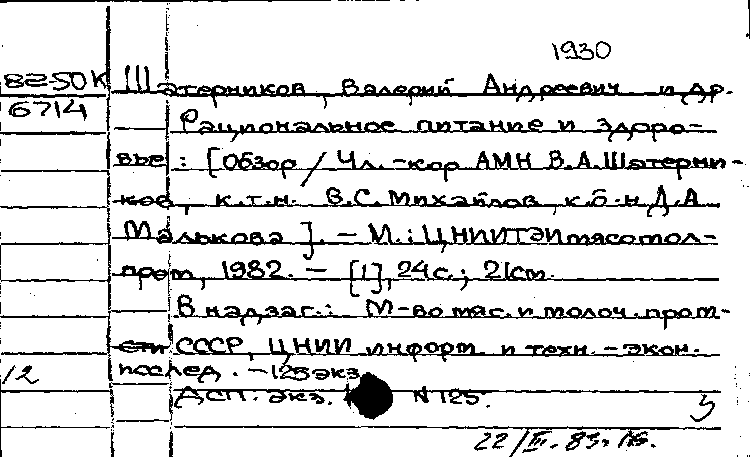 1930
82-50К Шатерников, Валерий Андреевич и др.
6714
Рациональное питание и здоро-
вье : [Обзор / Чл.-кор АМН В.А.Шатерни-
ков, к.т.н. В.С.Михайлов, к.б.н Д.А
Малькова]. – М.: ЦНИИТЭИмясомол-
пром, 1982. – [1], 24с.; 21см.
В надзаг.: М-во мяс. и молоч. пром-
сти СССР, ЦНИИ информ и техн.-экон.
12 исслед. – 125экз
Дсп. экз. N 125.
22/III.83г.